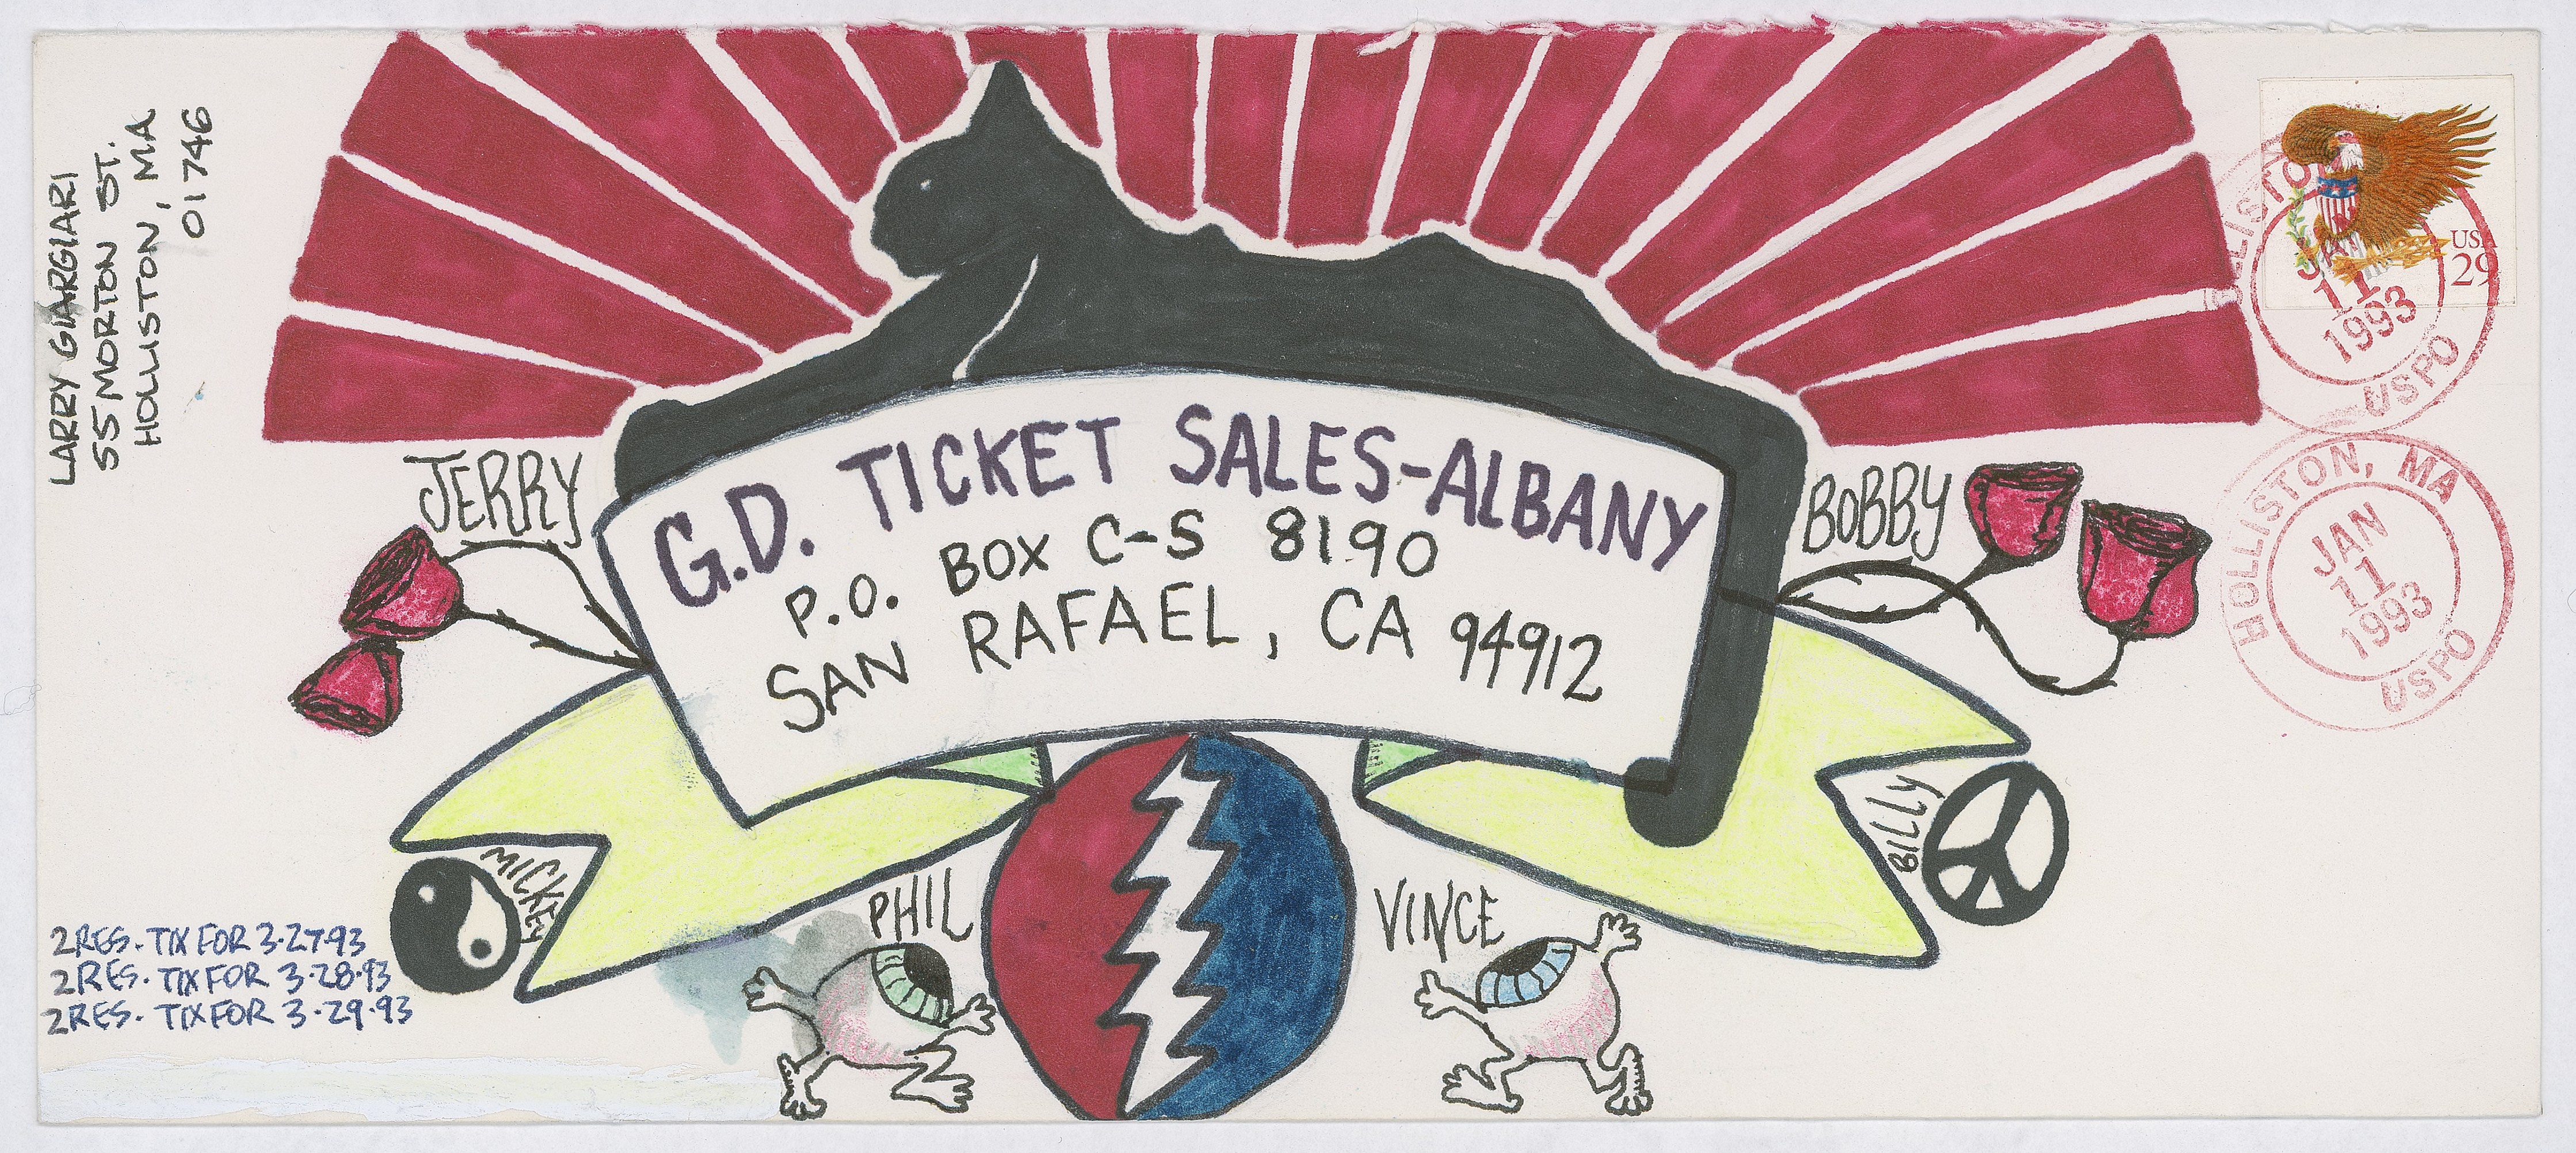 LARRY GIARGIARI
55 MORTON ST.
HOLLISTON, MA
01746
USA
29
JAN
11
1993
USPO
HOLLISTON, MA
JAN
11
1993
USPO
JERRY
BOBBY
G.D. TICKET SALES-ALBANY
P.O. BOX C-S 8190
SAN RAFAEL, CA 94912
MICKEY
BILLY
PHIL
VINCE
2 RES. TIX FOR 3.27.93
2 RES. TIX FOR 3.28.93
2 RES. TIX FOR 3.29.93